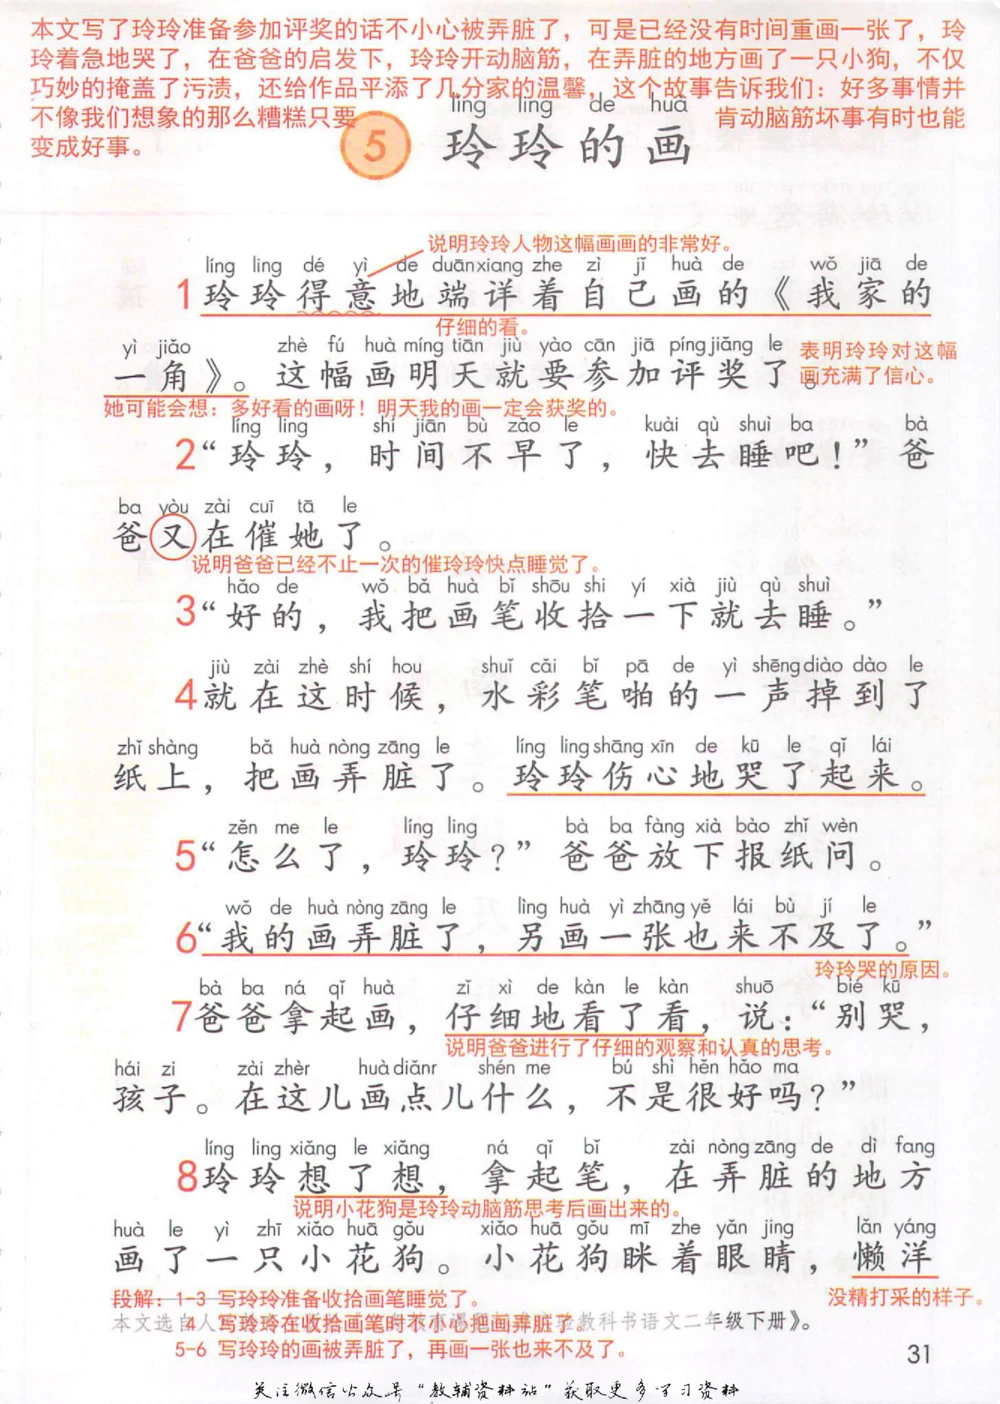 本文写了玲玲准备参加评奖的话不小心被弄脏了，可是已经没有时间重画一张了，玲
玲着急地哭了，在爸爸的启发下，玲玲开动脑筋，在弄脏的地方画了一只小狗，不仅
巧妙的掩盖了污渍，还给作品平添了几分家的温馨，这个故事告诉我们：好多事情并
不像我们想象的那么糟糕只要 肯动脑筋坏事有时也能
变成好事。
líng ling de huà
5 玲玲的画
说明玲玲人物这幅画画的非常好。
líng ling dé yì de duānxiang zhe zì jǐ huà de wǒ jiā de
1 玲玲得意地端详着自己画的《我家的
仔细的看。
yì jiǎo zhè fú huà míng tiān jiù yào cān jiā píng jiǎng le
一角》。这幅画明天就要参加评奖了。
表明玲玲对这幅
画充满了信心。
她可能会想：多好看的画呀！明天我的画一定会获奖的。
líng ling shí jiān bù zǎo le kuài qù shuì ba bà
2 “玲玲，时间不早了，快去睡吧！”爸
ba yòu zài cuī tā le
爸又在催她了。
说明爸爸已经不止一次的催玲玲快点睡觉了。
hǎo de wǒ bǎ huà bǐ shōu shi yí xià jiù qù shuì
3 “好的，我把画笔收拾一下就去睡。”
jiù zài zhè shí hou shuǐ cǎi bǐ pā de yì shēng diào dào le
4 就在这时候，水彩笔啪的一声掉到了
zhǐ shàng bǎ huà nòng zāng le líng ling shāng xīn de kū le qǐ lái
纸上，把画弄脏了。玲玲伤心地哭了起来。
zěn me le líng ling bà ba fàng xià bào zhǐ wèn
5 “怎么了，玲玲？”爸爸放下报纸问。
wǒ de huà nòng zāng le lìng huà yì zhāng yě lái bù jí le
6 “我的画弄脏了，另画一张也来不及了。”
玲玲哭的原因。
bà ba ná qǐ huà zǐ xì de kàn le kàn shuō bié kū
7 爸爸拿起画，仔细地看了看，说：“别哭，
说明爸爸进行了仔细的观察和认真的思考。
hái zi zài zhèr huà diǎnr shén me bú shì hěn hǎo ma
孩子。在这儿画点儿什么，不是很好吗？”
líng ling xiǎng le xiǎng ná qǐ bǐ zài nòng zāng de dì fang
8 玲玲想了想，拿起笔，在弄脏的地方
说明小花狗是玲玲动脑筋思考后画出来的。
huà le yì zhī xiǎo huā gǒu xiǎo huā gǒu mī zhe yǎn jing lǎn yáng
画了一只小花狗。小花狗眯着眼睛，懒洋
没精打采的样子。
段解：1-3 写玲玲准备收拾画笔睡觉了。
本文选自人 教科书语文二年级下册》。
4 写玲玲在收拾画笔时不小心把画弄脏了。
5-6 写玲玲的画被弄脏了，再画一张也来不及了。
31
关注微信公众号“教辅资料站”获取更多学习资料